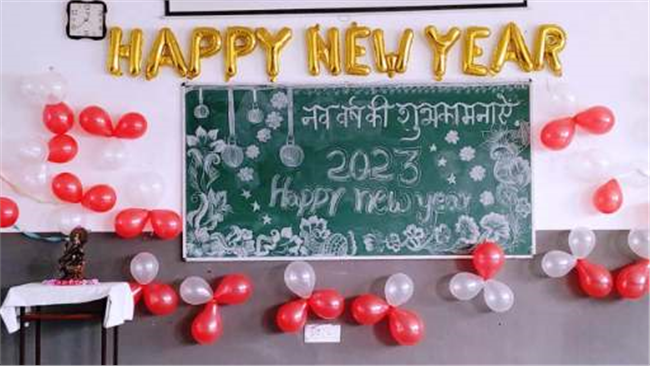 HAPPY NEW YEAR
नव वर्ष की शुभकामनाएँ
2023
Happy new year